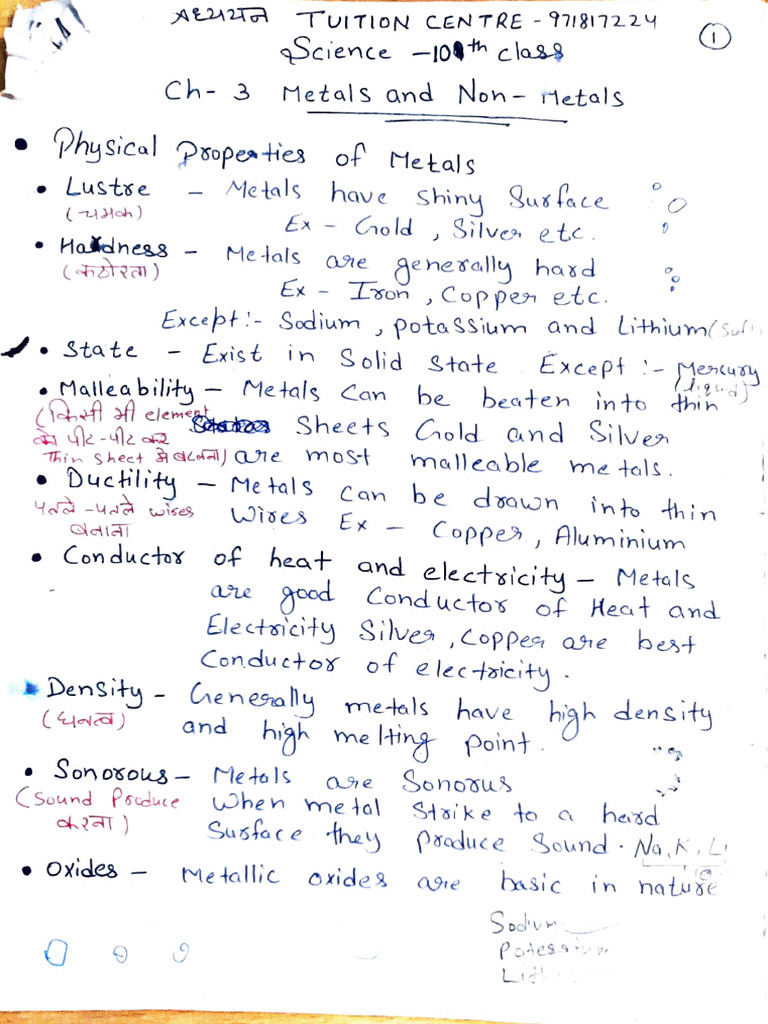 अध्ययन TUITION CENTRE - 971817224
1
Science - 10th class
Ch- 3 Metals and Non-Metals
• Physical Properties of Metals
• Lustre - Metals have shiny Surface
(चमक)
Ex - Gold, Silver etc.
• Hardness - Metals are generally hard
(कठोरता)
Ex - Iron, Copper etc.
Except:- Sodium, potassium and Lithium (Soft
• State - Exist in Solid State Except:- Mercury
(liquid)
• Malleability - Metals can be beaten into thin
(किसी भी element
Sheets Gold and Silver
को पीट-पीट कर
thin sheet में बदलना) are most malleable metals.
• Ductility - Metals can be drawn into thin
पतले-पतले wires
wires Ex - Copper, Aluminium
बनाना
• Conductor of heat and electricity - Metals
are good Conductor of Heat and
Electricity Silver, Copper are best
Conductor of electricity.
Density - Generally metals have high density
(घनत्व)
and high melting point.
• Sonorous - Metals are Sonorus
(Sound Produce When metal Strike to a hard
करना)
Surface they produce Sound. Na, K, Li
• Oxides - Metallic oxides are basic in nature
Sodium
Potessium